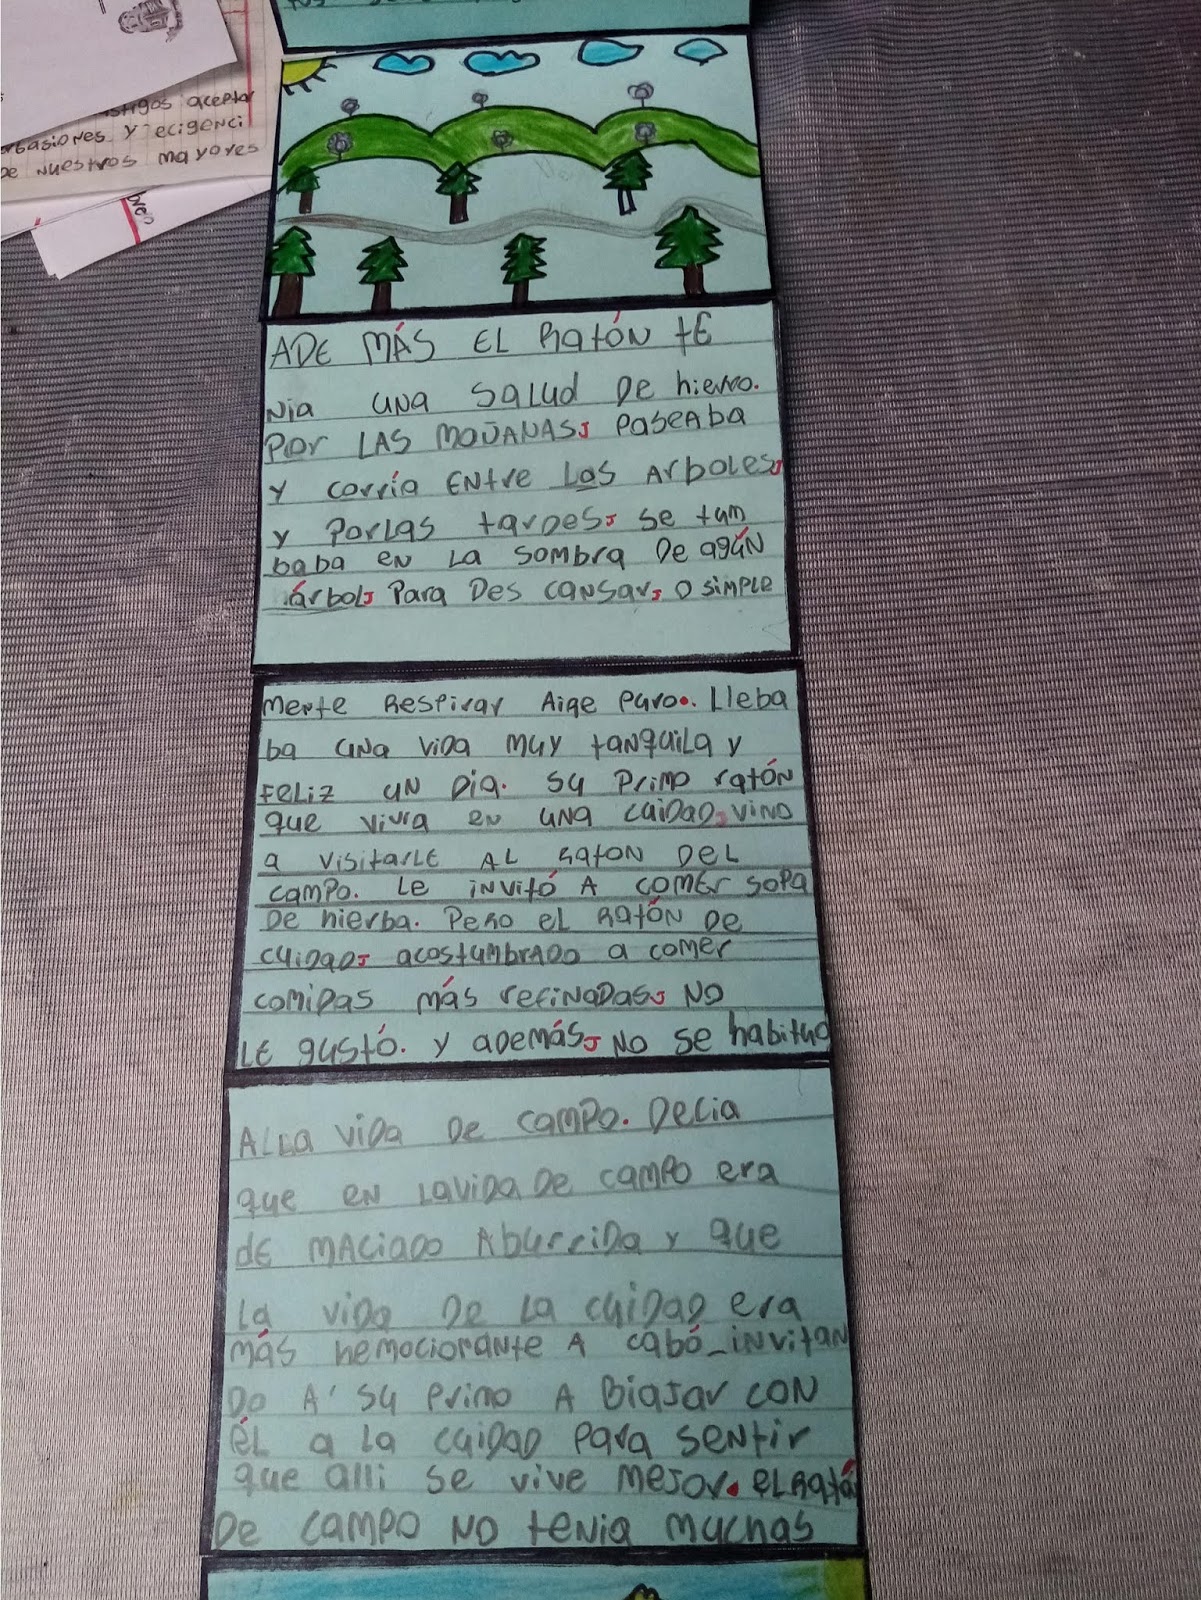 stigos aceptar
basiones y ecigenci
de nuestros mayores
ADE MÁS EL RATÓN TE
Nia una salud de hierro.
Por LAS MOÑANAS, PASEABA
y corría ENtre Los Arboles,
y Porlas tardes, se tum
baba en la sombra de agún
árbol, Para Des cansar, o simple
mente Respirar Aige Puro. Lleba
ba una vida muy tanquila y
feliz un Dia. su Primo ratón
que vivia en una cuidad, vino
a visitarle AL Raton DEL
campo. Le invitó A comer sopa
De hierba. Pero el Ratón DE
cuidad, acostumbrado a comer
comidas más refinadas, NO
LE gustó. y además, no se habituo
ALLa vida De campo. Decia
que en Lavida De campo era
de maciado Aburrida y que
la vida De La cuidad era
más hemocionante A cabó invitan
Do A su Primo A Biajar con
él a la cuidad Para sentir
que alli se vive mejor. el Ratón
De campo no tenia muchas